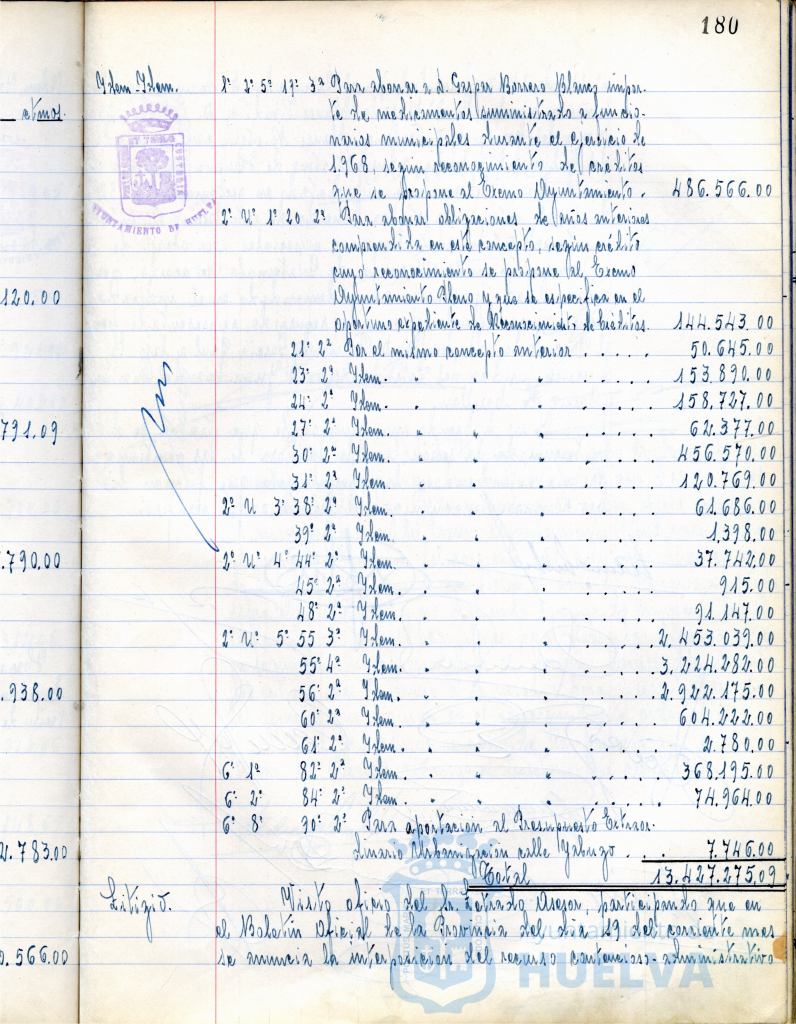 180
Idem-Idem. 1º 2º 5º 17º 3ª Para abonar a D. Gaspar Barrero Blanco impor-
te de medicamentos suministrado a funcio-
narios municipales durante el ejercicio de
1.968, según reconocimiento de créditos
que se propone al Excmo Ayuntamiento. 486.566.00
2º Uº 1º 20 2ª Para abonar obligaciones de años anteriores
comprendida en este concepto, según crédito
cuyo reconocimiento se propone al Excmo
Ayuntamiento Pleno y que se especifica en el
oportuno expediente de Reconocimiento de Créditos. 144.543.00
21º 2ª Por el mismo concepto anterior . . . . . 50.645.00
23º 2ª Idem. " " " . . . . . 153.890.00
24º 2ª Idem. " " " . . . . . 158.727.00
27º 2ª Idem. " " " . . . . . 62.377.00
30º 2ª Idem. " " " . . . . . 456.570.00
31º 2ª Idem. " " " . . . . . 120.769.00
2º U. 3º 38º 2ª Idem. " " " . . . . . 61.686.00
39º 2ª Idem. " " " . . . . . 1.398.00
2º Uº 4º 44º 2ª Idem. " " " . . . . . 37.742.00
45º 2ª Idem. " " " . . . . . 915.00
48º 2ª Idem. " " " . . . . . 91.147.00
2º Uº 5º 55 3ª Idem. " " " . . . . 2.453.039.00
55º 4ª Idem. " " " . . . . 3.224.282.00
56º 2ª Idem. " " " . . . . 2.922.175.00
60º 2ª Idem. " " " . . . . . 604.222.00
61º 2ª Idem. " " " . . . . . 2.780.00
6º 1º 82º 2ª Idem. " " " . . . . . 368.195.00
6º 2º 84º 2ª Idem. " " " . . . . . 74.964.00
6º 8º 90º 2ª Para aportación al Presupuesto Extraor-
dinario Urbanización calle Jabugo . . . 7.746.00
Total 13.427.275,09
Litigio. Visto oficio del Sr. Letrado Asesor, participando que en
el Boletín Oficial de la Provincia del día 19 del corriente mes
se anuncia la interposición del recurso contencioso-administrativo
ctmos.
120.00
791.09
.790.00
.938.00
2.783.00
0.566.00
AYUNTAMIENTO DE HUELVA
ayuntamiento
HUELVA